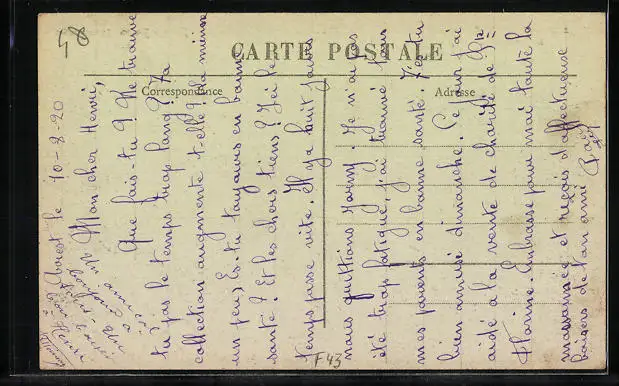 48
CARTE POSTALE
Correspondance
Adresse
Abrest le 10-8-20
Mon cher Henri,
Que fais-tu ? Ne trouves
tu pas le temps trop long ? Ta
collection augmente t-elle ? La mienne
un peu, Es-tu toujours en bonne
santé ? Et les chers tiens ? Ici le
temps passe vite. Il y a huit jours
nous quittions Je n'ai pas
été trop fatigué, j'ai trouvé tous
mes parents en bonne santé. T'es-tu
bien amusé dimanche. Ce jour j'ai
aidé à la vente de charité de St
Florine. Embrasse pour moi toute la
et reçois d'affectueux
baisers de ton ami
Un ami
bonjour à
bien Henri
F43